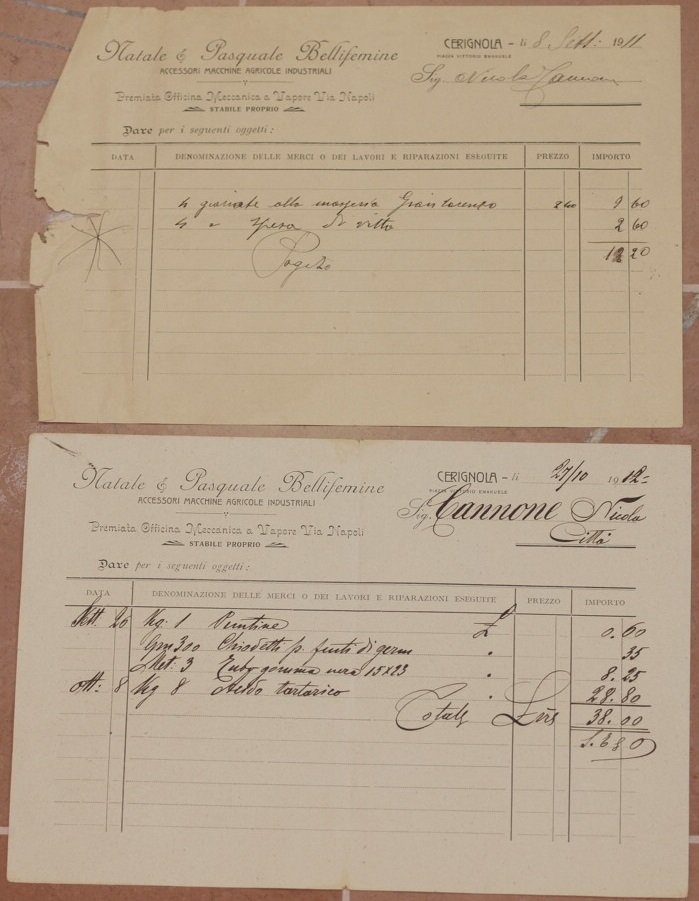 Natale & Pasquale Bellifemine
ACCESSORI MACCHINE AGRICOLE INDUSTRIALI
Premiata Officina Meccanica a Vapore Via Napoli
STABILE PROPRIO
CERIGNOLA - li 8 Sett: 1911
PIAZZA VITTORIO EMANUELE
Sig. Nicola Cannone
Dare per i seguenti oggetti:
DATA DENOMINAZIONE DELLE MERCI O DEI LAVORI E RIPARAZIONI ESEGUITE PREZZO IMPORTO
4 giornate alla masseria 2 40 9 60
4 " spesa di vitto 2 60
12 20
Pagato
Natale & Pasquale Bellifemine
ACCESSORI MACCHINE AGRICOLE INDUSTRIALI
Premiata Officina Meccanica a Vapore Via Napoli
STABILE PROPRIO
CERIGNOLA - li 27/10 1912=
PIAZZA VITTORIO EMANUELE
Sig. Cannone Nicola
Città
Dare per i seguenti oggetti:
DATA DENOMINAZIONE DELLE MERCI O DEI LAVORI E RIPARAZIONI ESEGUITE PREZZO IMPORTO
Sett. 26 Kg. 1 Puntine £ 0.60
Grm 300 Chiodetti p. finti di germ " 35
Met. 3 Tubo gomma nera 15x23 " 8.25
Ott: 8 Kg 8 Acido tartarico " 28.80
Totale Lire 38.00